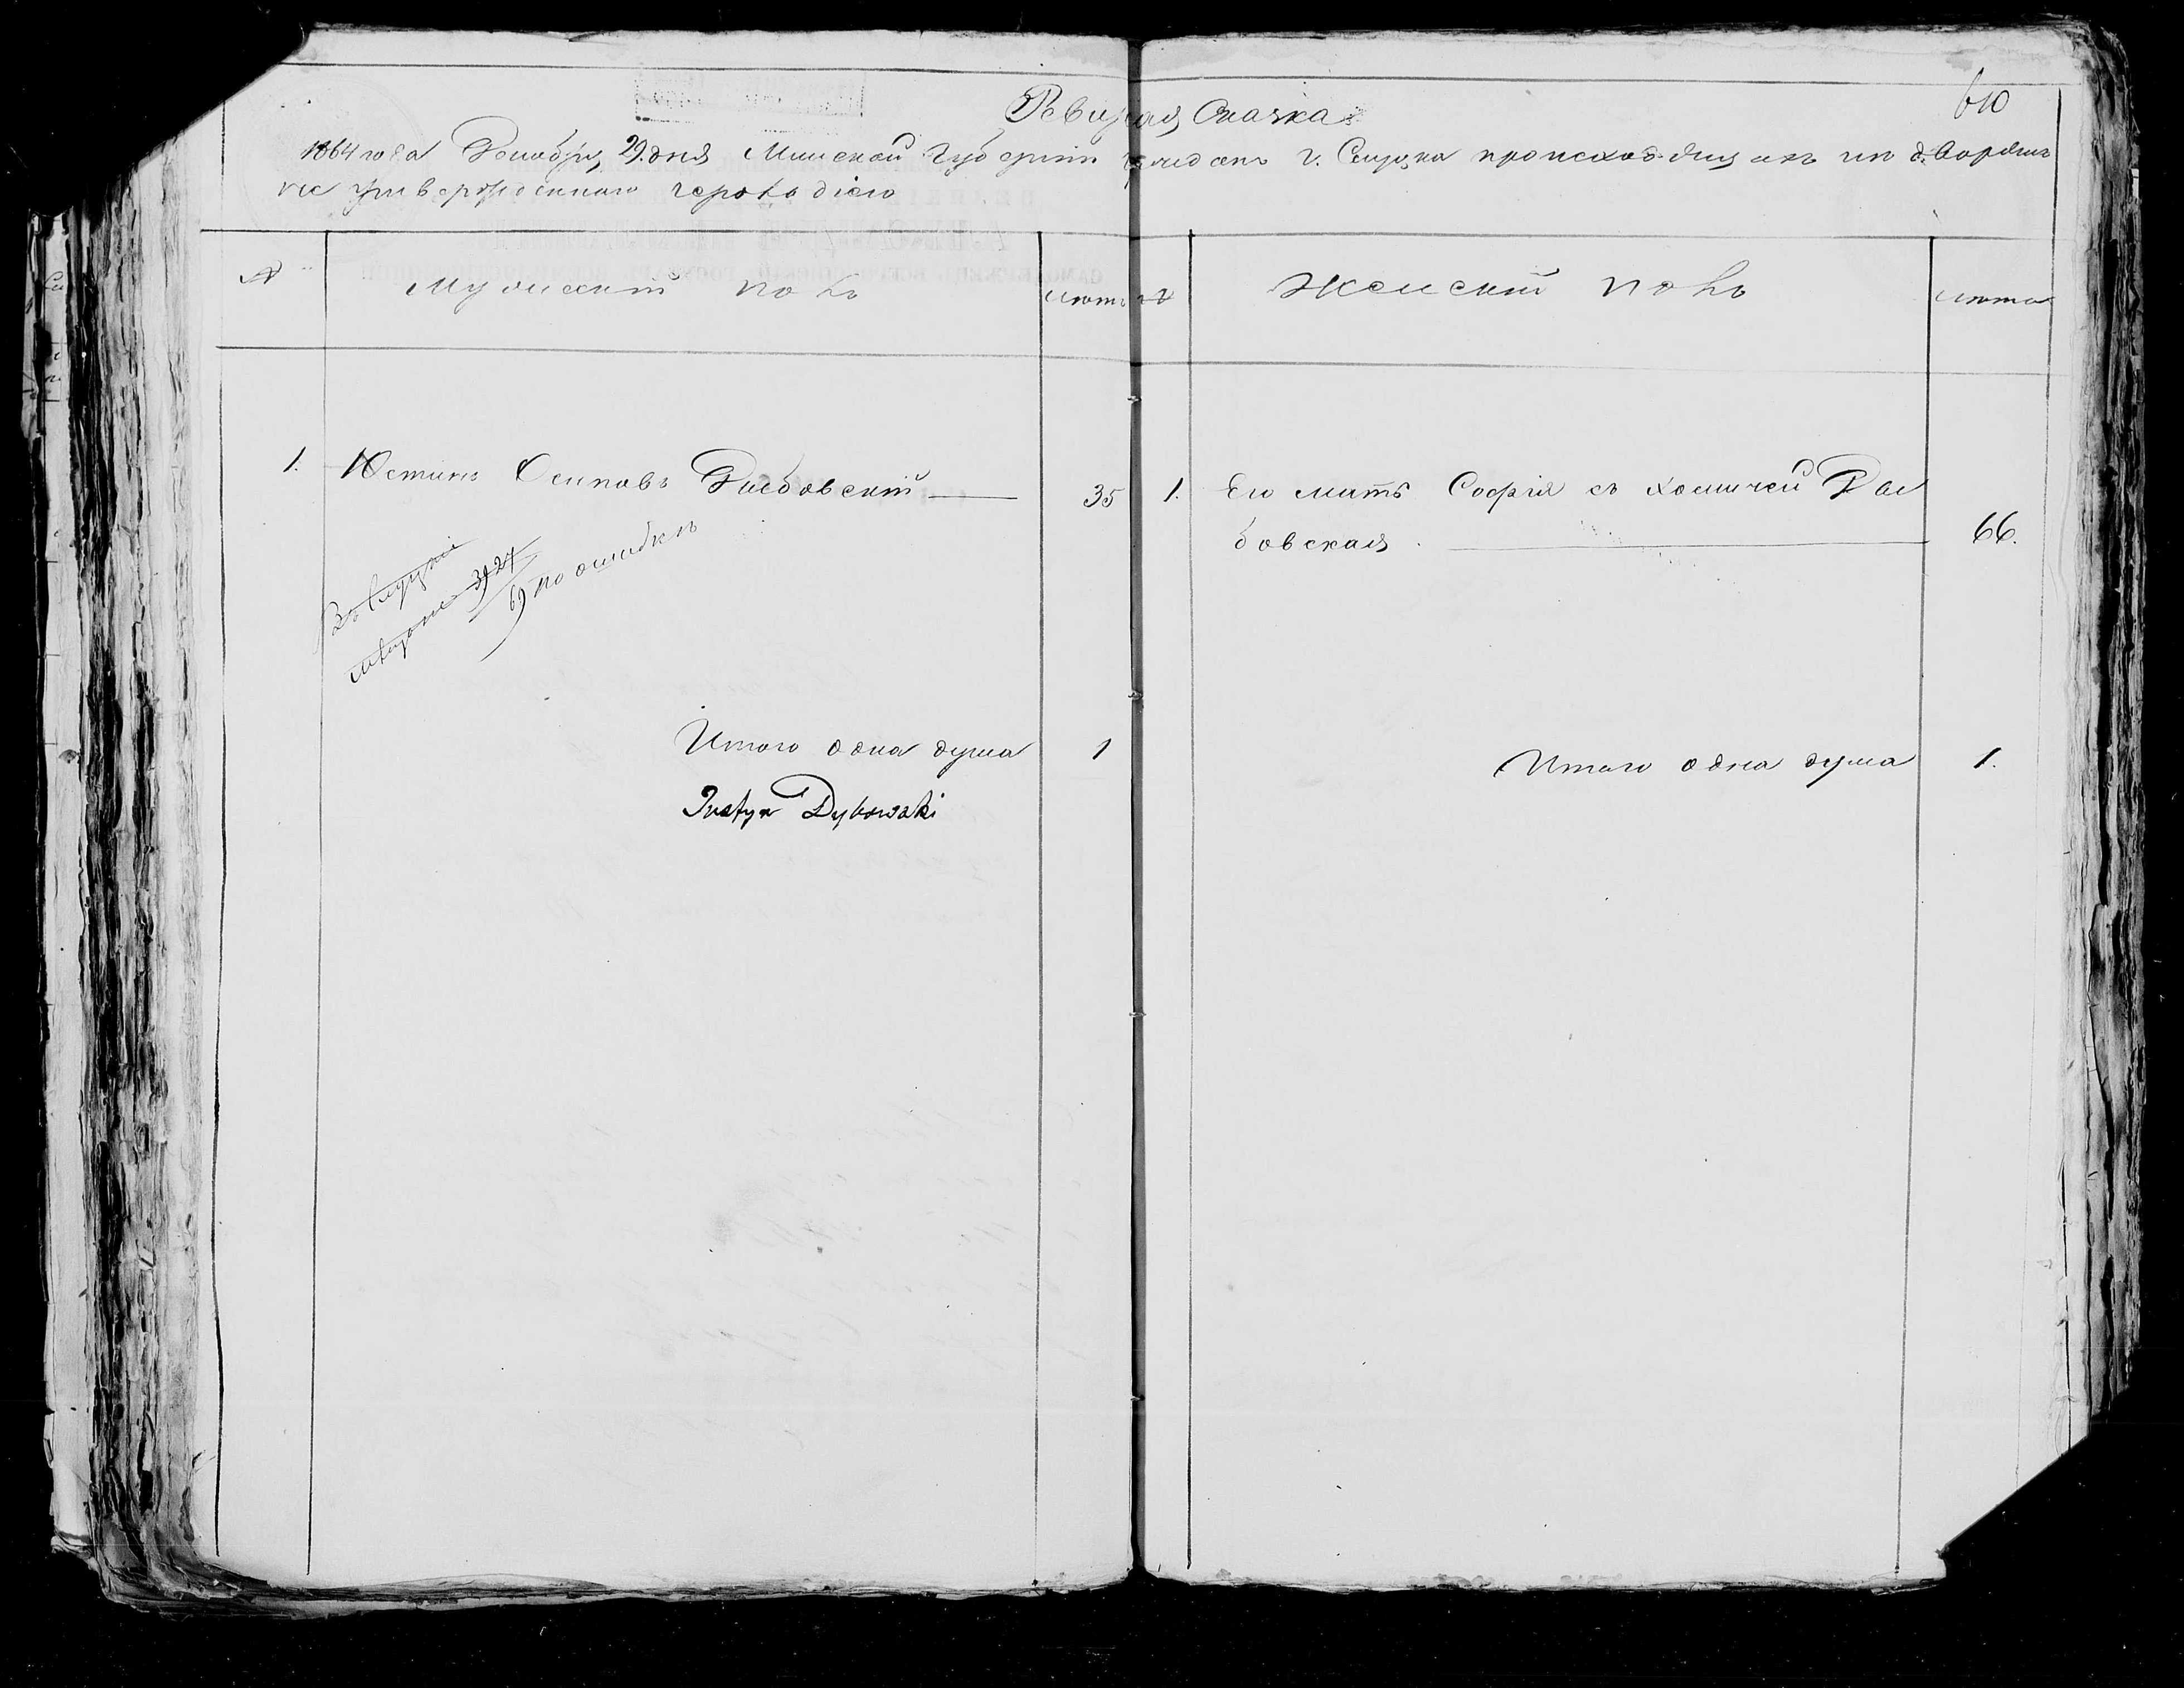 610
Ревизкая Сказка
1864 года Декабря 29. дня Минской Губернии граждань г. Слуцка происход.дящихъ изъ дворянъ
не утвержденнаго герольдіею
№ Мужескій полъ лѣта № Женскій полъ лѣта
1. Юстинъ Осиповъ Дыбовскій 35 1. Его мать София съ Хомичей Ды
бовская 66.
Въ Слуцкіе
мѣщане 3927
69 по ошибкѣ
Итого одна душа 1 Итого одна душа 1.
Justyn Dybowski